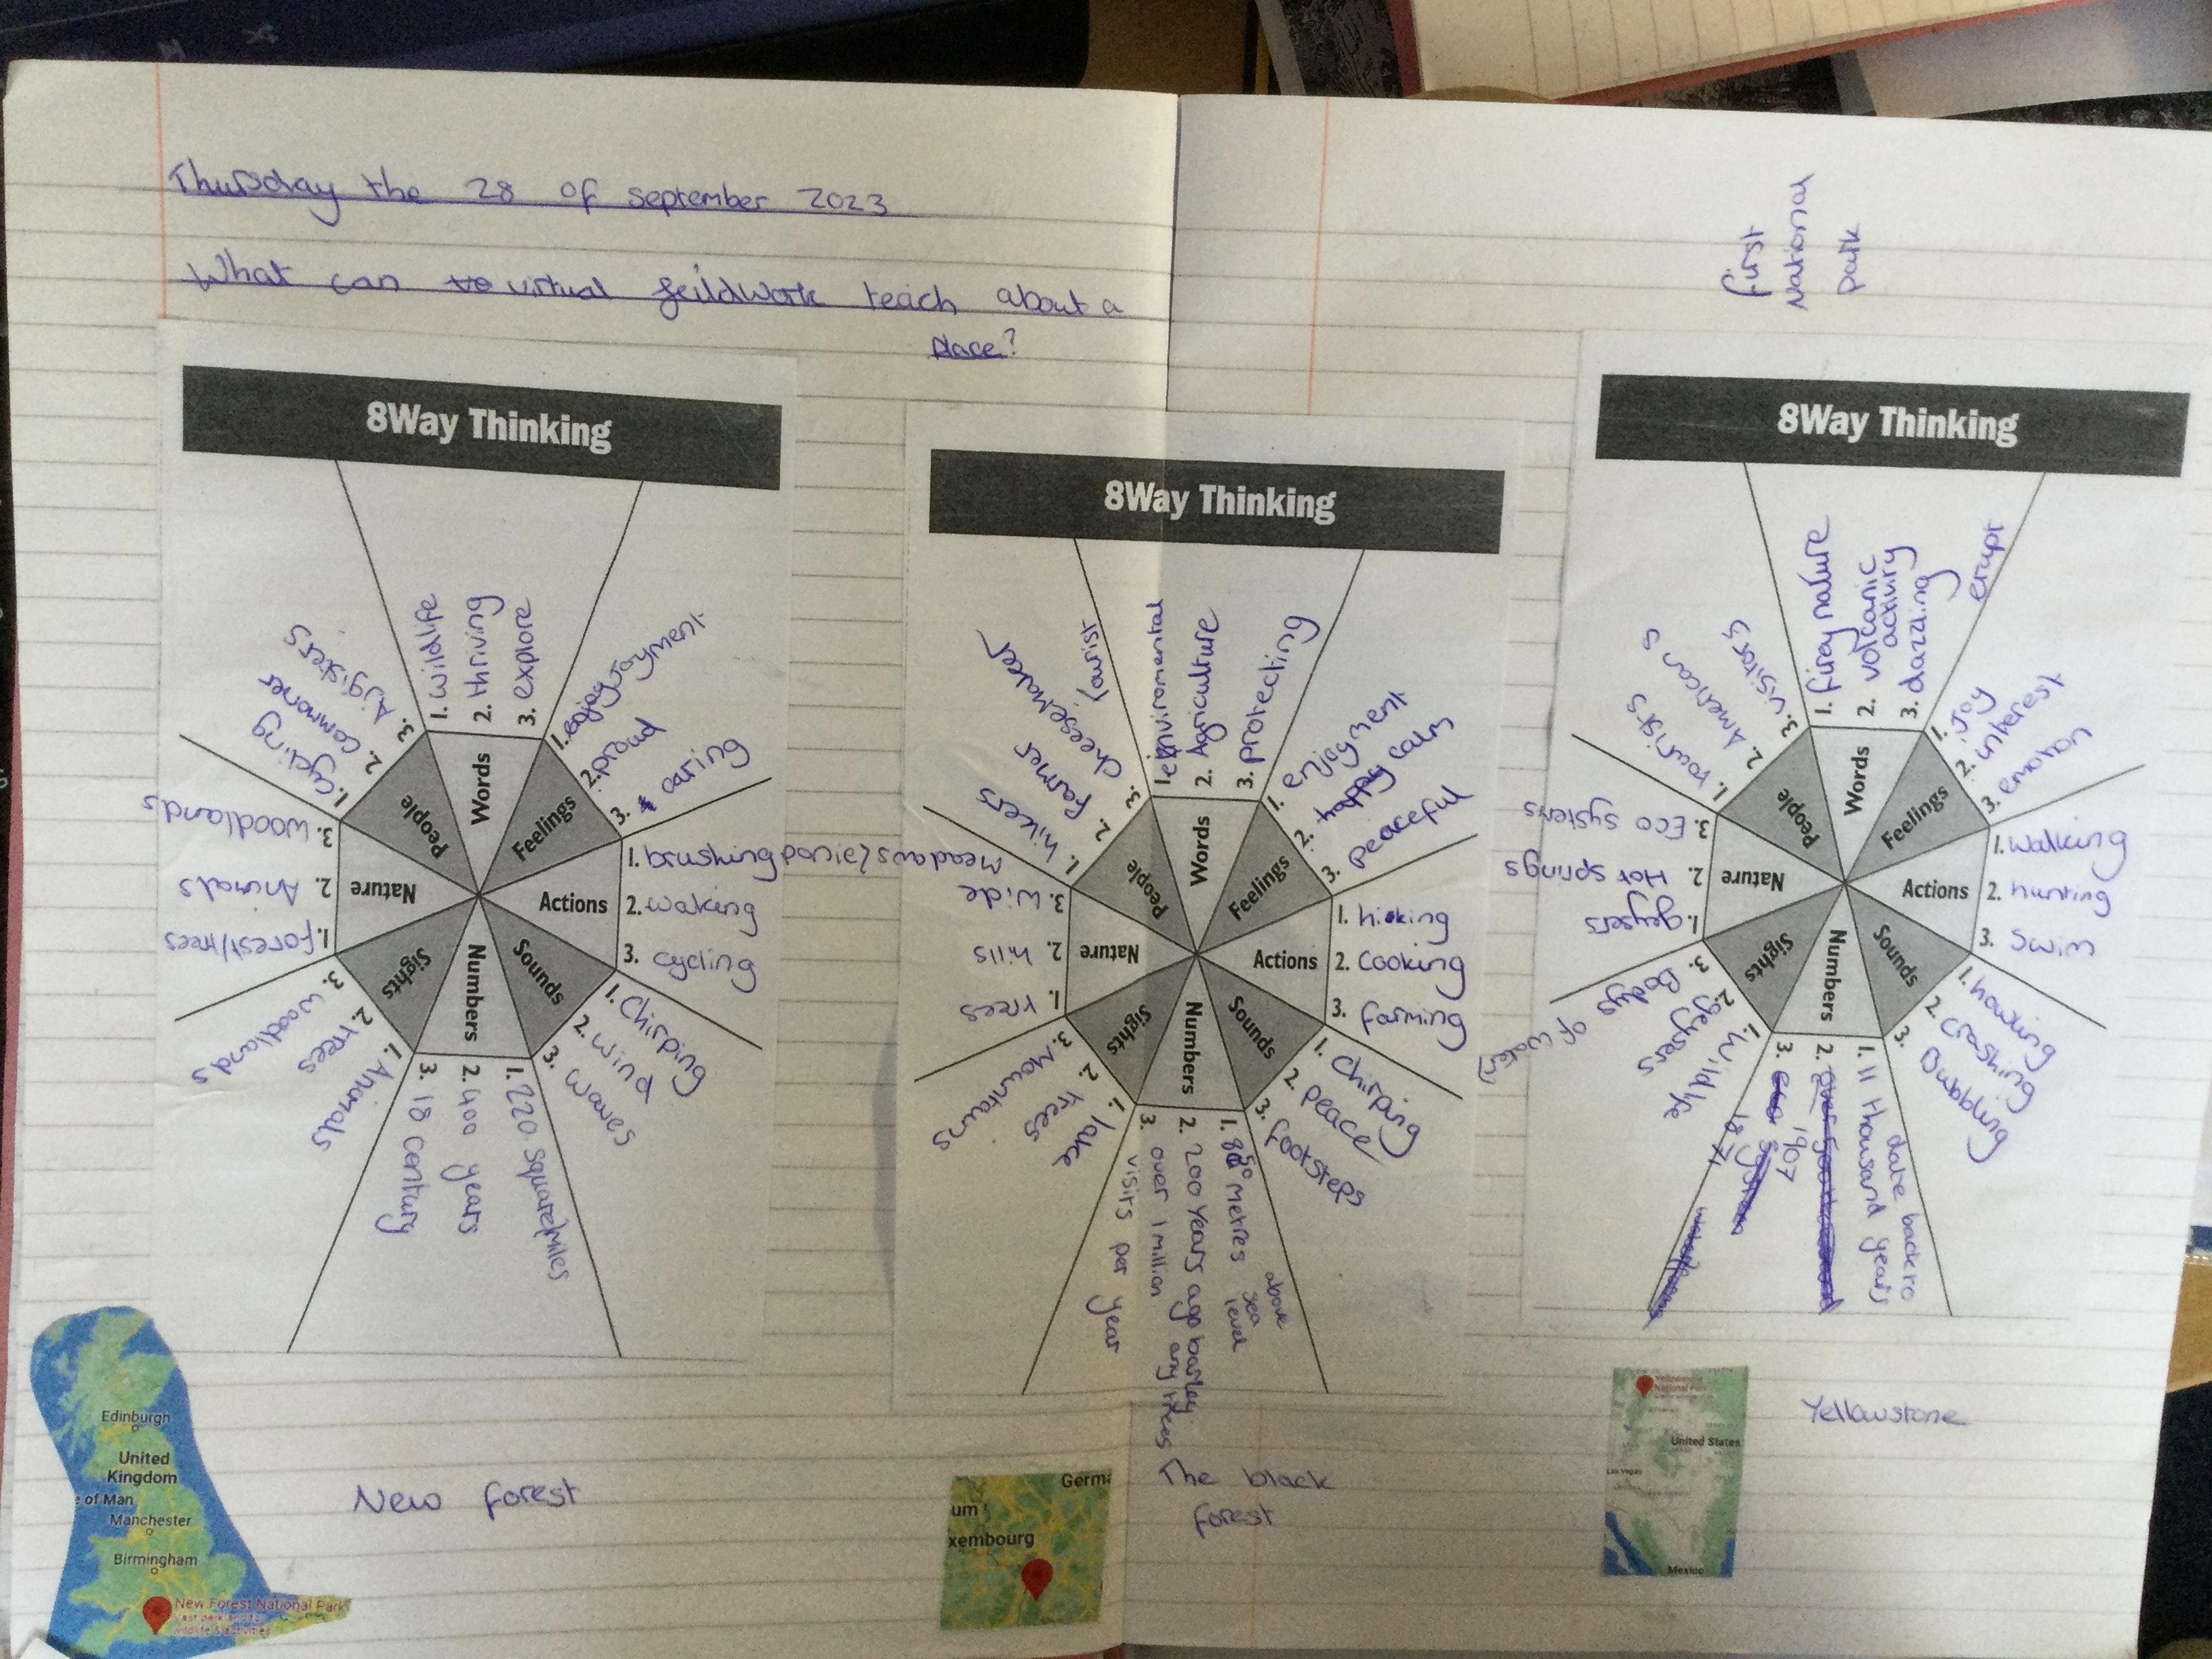 Thursday the 28 of september 2023
What can virtual feildwork teach about a
place?
8Way Thinking
Words
1. wildlife
2. thriving
3. explore
Feelings
1. enjoyment
2. proud
3. caring
Actions
1. brushing
2. waking
3. cycling
Sounds
1. Chirping
2. wind
3. waves
Numbers
1. 220 square miles
2. 400 years
3. 18 century
Sights
1. Animals
2. trees
3. woodlands
Nature
1. forest/trees
2. Animals
3. woodlands
People
1. cycling
2. commoner
3. Agisters
New forest
Edinburgh
United
Kingdom
e of Man
Manchester
Birmingham
New Forest National Park
8Way Thinking
Words
1. environmental
2. Agriculture
3. protecting
Feelings
1. enjoyment
2. happy calm
3. peaceful
Actions
1. hicking
2. cooking
3. farming
Sounds
1. Chirping
2. peace
3. footsteps
Numbers
1. 850 metres
above
sea
level
2. 200 Years ago barley
any trees
3. over 1 million
visits per year
Sights
1. lake
2. trees
3. Mountains
Nature
1. trees
2. hills
3. wide
meadows/
People
1. hikers
2. farmer
3. cheesemaker
tourist
The black
forest
Germa
um
xembourg
first
National
park
8Way Thinking
Words
1. firey nature
2. volcanic
activiry
3. dazzling
erupt
Feelings
1. Joy
2. interest
3. emotion
Actions
1. walking
2. hunting
3. swim
Sounds
1. howling
2. crashing
3. Bubbling
Numbers
1. 11 thousand years
date back to
3. 1907
1871
Sights
1. wildlife
2. geysers
3. Bodys
of water
Nature
1. geysers
2. Hot springs
3. Eco systems
People
1. tourists
2. Americans
3. visitors
Yellowstone
Yellowstone
National Park
United States
Las Vegas
Mexico